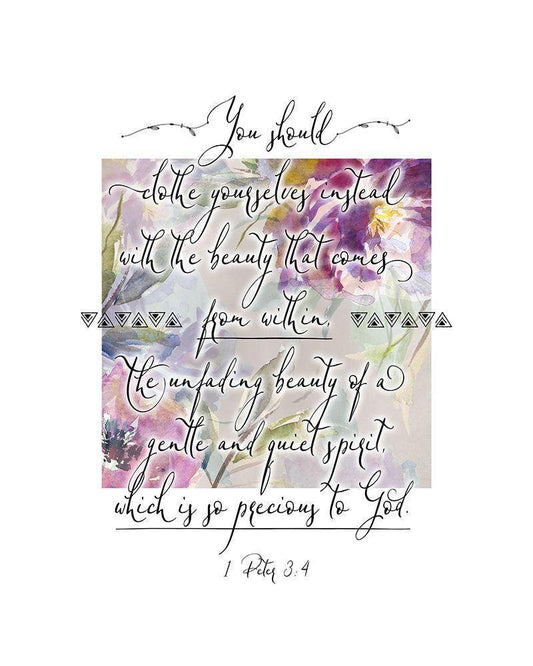 You should
clothe yourselves instead
with the beauty that comes
from within,
the unfading beauty of a
gentle and quiet spirit,
which is so precious to God.
1 Peter 3:4